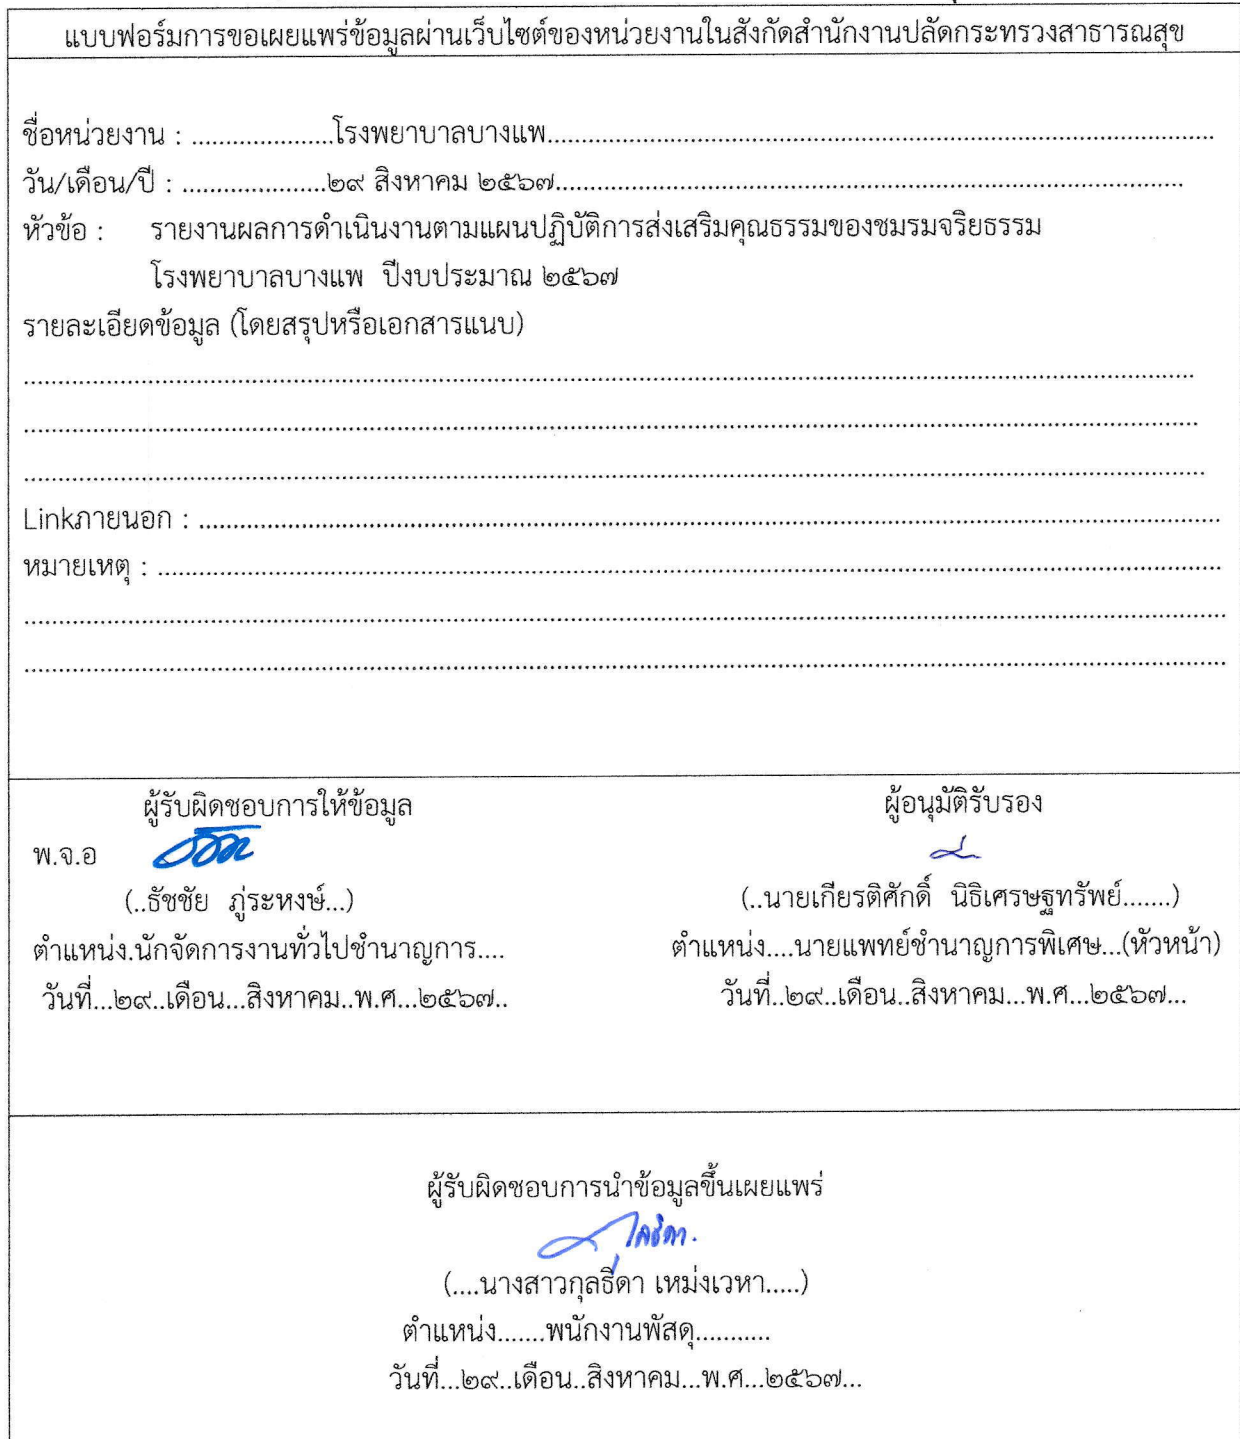 แบบฟอร์มการขอเผยแพร่ข้อมูลผ่านเว็บไซต์ของหน่วยงานในสังกัดสำนักงานปลัดกระทรวงสาธารณสุข
ชื่อหน่วยงาน : .....................โรงพยาบาลบางแพ....................................................................................................
วัน/เดือน/ปี : .....................๒๙ สิงหาคม ๒๕๖๗.............................................................................................
หัวข้อ : รายงานผลการดำเนินงานตามแผนปฏิบัติการส่งเสริมคุณธรรมของชมรมจริยธรรม
โรงพยาบาลบางแพ ปีงบประมาณ ๒๕๖๗
รายละเอียดข้อมูล (โดยสรุปหรือเอกสารแนบ)
Linkภายนอก : ....................................................................................................
หมายเหตุ : ....................................................................................................
ผู้รับผิดชอบการให้ข้อมูล
พ.จ.อ
(..ธัชชัย ภู่ระหงษ์...)
ตำแหน่ง.นักจัดการงานทั่วไปชำนาญการ....
วันที่...๒๙..เดือน...สิงหาคม..พ.ศ...๒๕๖๗..
ผู้อนุมัติรับรอง
(..นายเกียรติศักดิ์ นิธิเศรษฐทรัพย์.......)
ตำแหน่ง....นายแพทย์ชำนาญการพิเศษ...(หัวหน้า)
วันที่..๒๙..เดือน..สิงหาคม...พ.ศ...๒๕๖๗...
ผู้รับผิดชอบการนำข้อมูลขึ้นเผยแพร่
(....นางสาวกุลธิดา เหม่งเวหา.....)
ตำแหน่ง.......พนักงานพัสดุ...........
วันที่...๒๙..เดือน..สิงหาคม...พ.ศ...๒๕๖๗...